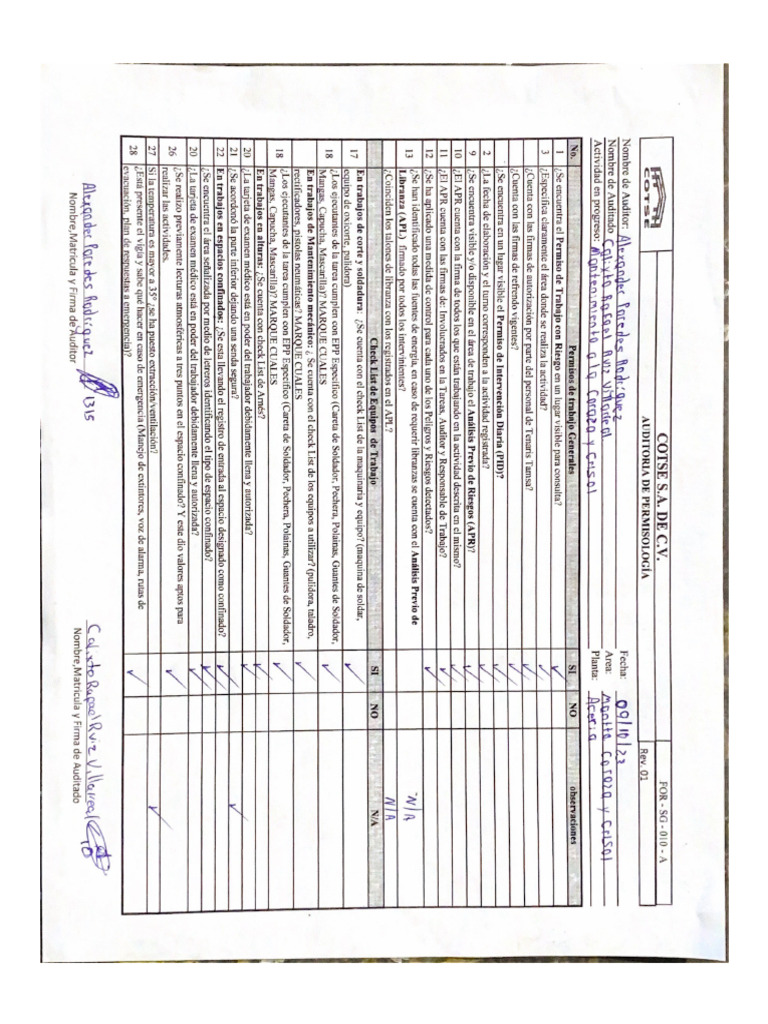 COTSE
COTSE S.A. DE C.V.
AUDITORIA DE PERMISOLOGÍA
FOR - SG - 010 - A
Rev. 01
Nombre de Auditor: Alexander Paredes Rodriguez
Fecha: 09/10/23
Nombre de Auditado Calixto Rafael Ruiz Villareal
Area: Montto Coraza y Crisol
Actividad en progreso: Mantenimiento a la Coraza y Crisol
Planta: Aceria
No. Permisos de trabajo Generales SI NO observaciones
1 ¿Se encuentra el Permiso de Trabajo con Riesgo en un lugar visible para consulta? ✓
3 ¿Especifica claramente el área donde se realiza la actividad? ✓
¿Cuenta con las firmas de autorización por parte del personal de Tenaris Tamsa? ✓
¿Cuenta con las firmas de refrendo vigentes? ✓
¿Se encuentra en un lugar visible el Permiso de Intervención Diaria (PID)? ✓
2 ¿La fecha de elaboración y el turno corresponden a la actividad registrada? ✓
9 ¿Se encuentra visible y/o disponible en el área de trabajo el Análisis Previo de Riesgos (APR)? ✓
10 ¿El APR cuenta con la firma de todos los que están trabajando en la actividad descrita en el mismo? ✓
11 ¿El APR cuenta con las firmas de: Involucrados en la Tareas, Auditor y Responsable de Trabajo? ✓
12 ¿Se ha aplicado una medida de control para cada uno de los Peligros y Riesgos detectados? ✓
13 ¿Se han identificado todas las fuentes de energía, en caso de requerir libranzas se cuenta con el Análisis Previo de
Libranza (APL) firmado por todos los intervinientes? N/A
¿Coinciden los talones de libranza con los registrados en el APL? N/A
Check List de Equipos de Trabajo SI NO N/A
17 En trabajos de corte y soldadura: ¿Se cuenta con el check List de la maquinaria y equipo? (maquina de soldar,
equipo de oxicorte, pulidora) ✓
18 ¿Los ejecutantes de la tarea cumplen con EPP Especifico (Careta de Soldador, Pechera, Polainas, Guantes de Soldador,
Mangas, Capucha, Mascarilla)? MARQUE CUALES ✓
En trabajos de Mantenimiento mecánico: ¿ Se cuenta con el check List de los equipos a utilizar? (pulidora, taladro,
rectificadores, pistolas neumáticas? MARQUE CUALES ✓
18 ¿Los ejecutantes de la tarea cumplen con EPP Especifico (Careta de Soldador, Pechera, Polainas, Guantes de Soldador,
Mangas, Capucha, Mascarilla)? MARQUE CUALES ✓
En trabajos en alturas: ¿Se cuenta con check List de Arnés? ✓
20 ¿La tarjeta de examen médico está en poder del trabajador debidamente llena y autorizada? ✓
21 ¿Se acordonó la parte inferior dejando una senda segura? ✓
22 En trabajos en espacios confinados: ¿Se esta llevando el registro de entrada al espacio designado como confinado? ✓
¿Se encuentra el área señalizada por medio de letreros identificando el tipo de espacio confinado? ✓
20 ¿La tarjeta de examen médico está en poder del trabajador debidamente llena y autorizada? ✓
26 ¿Se realizo previamente lecturas atmosféricas a tres puntos en el espacio confinado? Y este dio valores aptos para
realizar las actividades. ✓
27 Si la temperatura es mayor a 35° ¿se ha puesto extracción/ventilación? ✓
28 ¿Está presente el vigía y sabe qué hacer en caso de emergencia (Manejo de extintores, voz de alarma, rutas de
evacuación, plan de respuestas a emergencia)? ✓
Alexander Paredes Rodriguez 1315
Nombre,Matricula y Firma de Auditor
Calixto Rafael Ruiz Villareal
Nombre,Matricula y Firma de Auditado